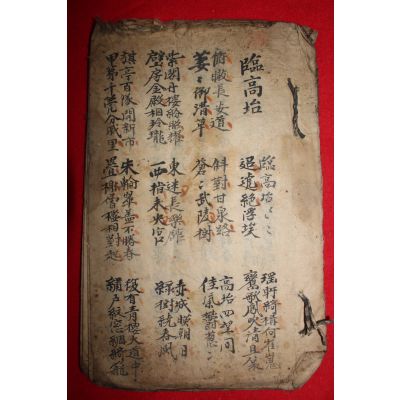 臨高坮
臨高坮〻〻 瑤軒綺構何崔嵬
迢遞絶浮埃 鸞歌鳳吹清且哀
俯瞰長安道 斜對甘泉路 高坮四望同
萋〻御溝草 蒼〻武陵樹 佳氣鬱葱〻
紫閣丹樓紛照耀 東迷長樂觀 赤城映朝日
璧房金殿相玲瓏 西指未央宮 綠樹繞春風
旗亭百隊開新市 朱輪翠盖不勝春 復有青樓大道中
甲第千甍分戚里 疊榭層樓相對起 繡戶紋窓綺櫳